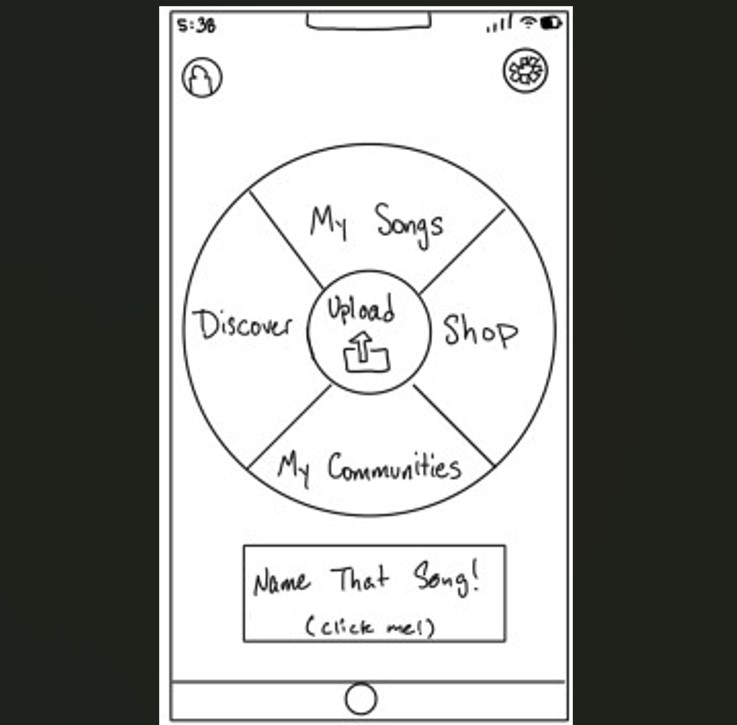 5:38
My Songs
Upload
Discover
Shop
My Communities
Name That Song!
(click me!)